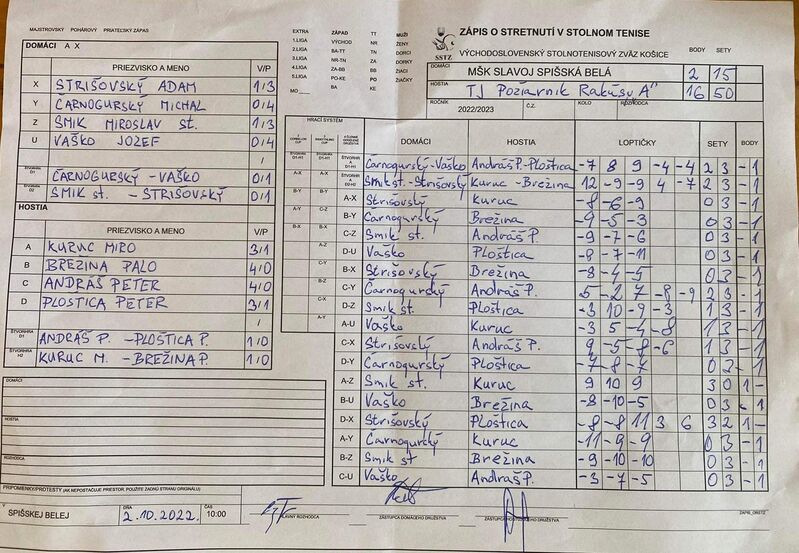 MAJSTROVSKÝ POHÁROVÝ PRIATEĽSKÝ ZÁPAS
EXTRA ZÁPAD TT MUŽI
1.LIGA VÝCHOD NR ŽENY
2.LIGA BA-TT TN DORCI
3.LIGA NR-TN ZA DORKY
4.LIGA ZA-BB BB ŽIACI
5.LIGA PO-KE PO ŽIAČKY
MO KE
SSTZ
ZÁPIS O STRETNUTÍ V STOLNOM TENISE
VÝCHODOSLOVENSKÝ STOLNOTENISOVÝ ZVÄZ KOŠICE
BODY SETY
DOMÁCI MŠK SLAVOJ SPIŠSKÁ BELÁ 2 15
HOSTIA TJ Požiarnik Rakúsy A" 16 50
ROČNÍK 2022/2023 Č.Z. KOLO ROZHODCA
DOMÁCI A X
PRIEZVISKO A MENO V/P
X STRIŠOVSKÝ ADAM 1/3
Y ČARNOGURSKÝ MICHAL 0/4
Z SMIK MIROSLAV st. 1/3
U VAŠKO JOZEF 0/4
/
ŠTVORHRA D1 ČARNOGURSKÝ - VAŠKO 0/1
ŠTVORHRA D2 SMIK st. - STRIŠOVSKÝ 0/1
HOSTIA
PRIEZVISKO A MENO V/P
A KURUC MIRO 3/1
B BREŽINA PALO 4/0
C ANDRÁŠ PETER 4/0
D PLOSTICA PETER 3/1
/
ŠTVORHRA D1 ANDRÁŠ P. - PLOŠTICA P. 1/0
ŠTVORHRA H2 KURUC M. - BREŽINA P. 1/0
DOMÁCI
HOSTIA
ROZHODCA
PRIPOMIENKY/PROTESTY (AK NEPOSTAČUJE PRIESTOR, POUŽITE ZADNÚ STRANU ORIGINÁLU)
HRACÍ SYSTÉM
DOMÁCI HOSTIA LOPTIČKY SETY BODY
ŠTVORHRA D1-H1 Čarnogurský-Vaško Andráš P.-Ploštica -7 8 9 -4 -4 2 3 -1
ŠTVORHRA D2-H2 Smik st.-Strišovský Kuruc - Brežina 12 -9 -9 4 -7 2 3 -1
A-X Strišovský Kuruc -8 -6 -9 0 3 -1
B-Y Čarnogurský Brežina -9 -5 -3 0 3 -1
C-Z Smik st. Andráš P. -9 -7 -6 0 3 -1
D-U Vaško Ploštica -8 -7 -11 0 3 -1
B-X Strišovský Brežina -8 -4 -5 0 3 -1
C-Y Čarnogurský Andráš P. 5 -2 7 -8 -9 2 3 -1
D-Z Smik st. Ploštica -3 10 -9 -3 1 3 -1
A-U Vaško Kuruc -3 5 -4 -8 1 3 -1
C-X Strišovský Andráš P. 9 -5 -8 -6 1 3 -1
D-Y Čarnogurský Ploštica -7 -8 -7 0 3 -1
A-Z Smik st. Kuruc 9 10 9 3 0 1 -
B-U Vaško Brežina -8 -10 -5 0 3 -1
D-X Strišovský Ploštica -8 -8 11 3 6 3 2 1 -
A-Y Čarnogurský Kuruc -11 -9 -9 0 3 -1
B-Z Smik st Brežina -9 -10 -10 0 3 -1
C-U Vaško Andráš P. -3 -7 -5 0 3 -1
V SPIŠSKEJ BELEJ DŇA 2.10.2022. ČAS 10:00
HLAVNÝ ROZHODCA ZÁSTUPCA DOMÁCEHO DRUŽSTVA ZÁSTUPCA HOSŤUJÚCEHO DRUŽSTVA ZAPIS_OBSTZ